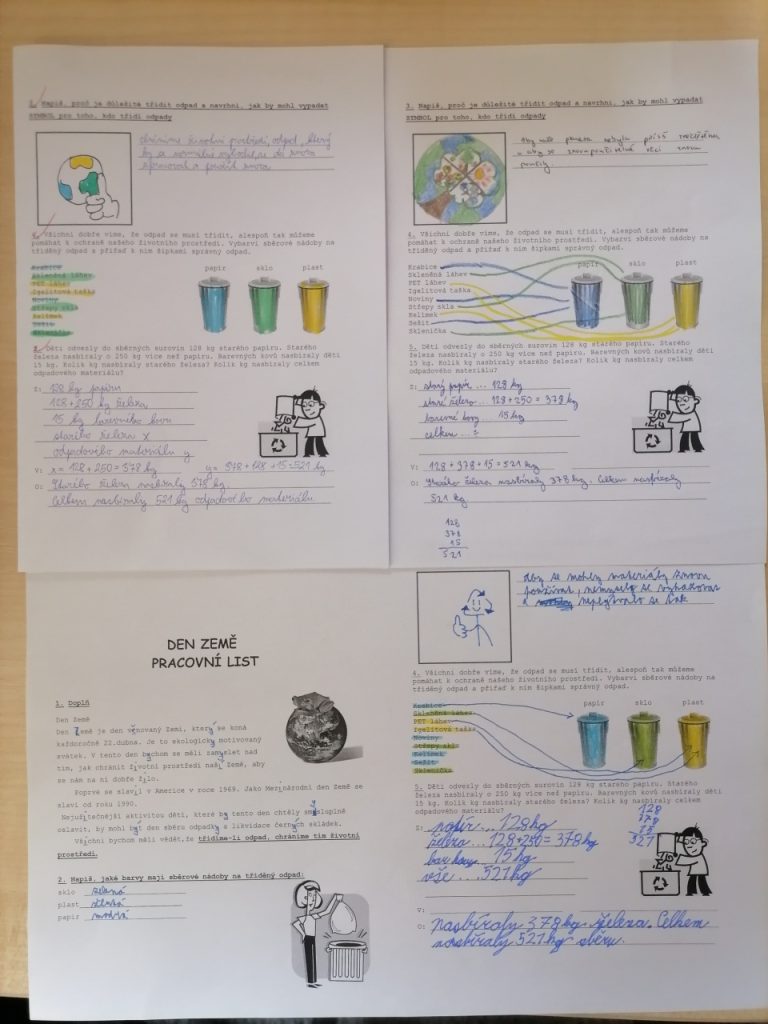 3. Napiš, proč je důležité třídit odpad a navrhni, jak by mohl vypadat
SYMBOL pro toho, kdo třídí odpady
chráníme životní prostředí, odpad, který
by se normálně vyhodil, se dá znova
zpracovat a použít znova
4. Všichni dobře víme, že odpad se musí třídit, alespoň tak můžeme
pomáhat k ochraně našeho životního prostředí. Vybarvi sběrové nádoby na
tříděný odpad a přiřaď k nim šipkami správný odpad.
papír sklo plast
Krabice
Skleněná láhev
PET láhev
Igelitová taška
Noviny
Střepy skla
Kelímek
Sešit
Sklenička
5. Děti odvezly do sběrných surovin 128 kg starého papíru. Starého
železa nasbíraly o 250 kg více než papíru. Barevných kovů nasbíraly děti
15 kg. Kolik kg nasbíraly starého železa? Kolik kg nasbíraly celkem
odpadového materiálu?
Z: 128 kg papíru
128+250 kg železa
15 kg barevného kovu
starého železa x
odpadového materiálu y
V: x = 128+250=378 kg y= 378+128+15=521 kg
O: Starého železa nasbíraly 378 kg.
Celkem nasbíraly 521 kg odpadového materiálu
3. Napiš, proč je důležité třídit odpad a navrhni, jak by mohl vypadat
SYMBOL pro toho, kdo třídí odpady
Aby naše planeta nebyla příliš znečištěna
a aby se znovupoužitelné věci znovu
použily.
4. Všichni dobře víme, že odpad se musí třídit, alespoň tak můžeme
pomáhat k ochraně našeho životního prostředí. Vybarvi sběrové nádoby na
tříděný odpad a přiřaď k nim šipkami správný odpad.
papír sklo plast
Krabice
Skleněná láhev
PET láhev
Igelitová taška
Noviny
Střepy skla
Kelímek
Sešit
Sklenička
5. Děti odvezly do sběrných surovin 128 kg starého papíru. Starého
železa nasbíraly o 250 kg více než papíru. Barevných kovů nasbíraly děti
15 kg. Kolik kg nasbíraly starého železa? Kolik kg nasbíraly celkem
odpadového materiálu?
Z: starý papír ... 128 kg
staré železo ... 128+250 = 378 kg
barevné kovy ... 15 kg
celkem ... ?
V: 128 + 378 + 15 = 521 kg
O: Starého železa nasbíraly 378 kg. Celkem nasbíraly
521 kg
128
378
15
521
DEN ZEMĚ
PRACOVNÍ LIST
1. Doplň
Den Země
Den Země je den věnovaný Zemi, který se koná
každoročně 22.dubna. Je to ekologicky motivovaný
svátek. V tento den bychom se měli zamyslet nad
tím, jak chránit životní prostředí naší Země, aby
se nám na ní dobře žilo.
Poprvé se slavil v Americe v roce 1969. Jako Mezinárodní den Země se
slaví od roku 1990.
Nejužitečnější aktivitou dětí, které by tento den chtěly smysluplně
oslavit, by mohl být den sběru odpadků a likvidace černých skládek.
Všichni bychom měli vědět, že třídíme-li odpad, chráníme tím životní
prostředí.
2. Napiš, jaké barvy mají sběrové nádoby na tříděný odpad:
sklo zelená
plast žlutá
papír modrá
aby se mohly materiály znovu
používat, nemuselo se vyhazovat
a neplýtvalo se tak
4. Všichni dobře víme, že odpad se musí třídit, alespoň tak můžeme
pomáhat k ochraně našeho životního prostředí. Vybarvi sběrové nádoby na
tříděný odpad a přiřaď k nim šipkami správný odpad.
papír sklo plast
Krabice
Skleněná láhev
PET láhev
Igelitová taška
Noviny
Střepy skla
Kelímek
Sešit
Sklenička
5. Děti odvezly do sběrných surovin 128 kg starého papíru. Starého
železa nasbíraly o 250 kg více než papíru. Barevných kovů nasbíraly děti
15 kg. Kolik kg nasbíraly starého železa? Kolik kg nasbíraly celkem
odpadového materiálu?
128
378
15
521
Z: papír ... 128kg
železa ... 128+250= 378 kg
bar kovy ... 15 kg
vše .... 521kg
V:
O: Nasbíraly 378 kg železa. Celkem
nasbíraly 521 kg sběru.